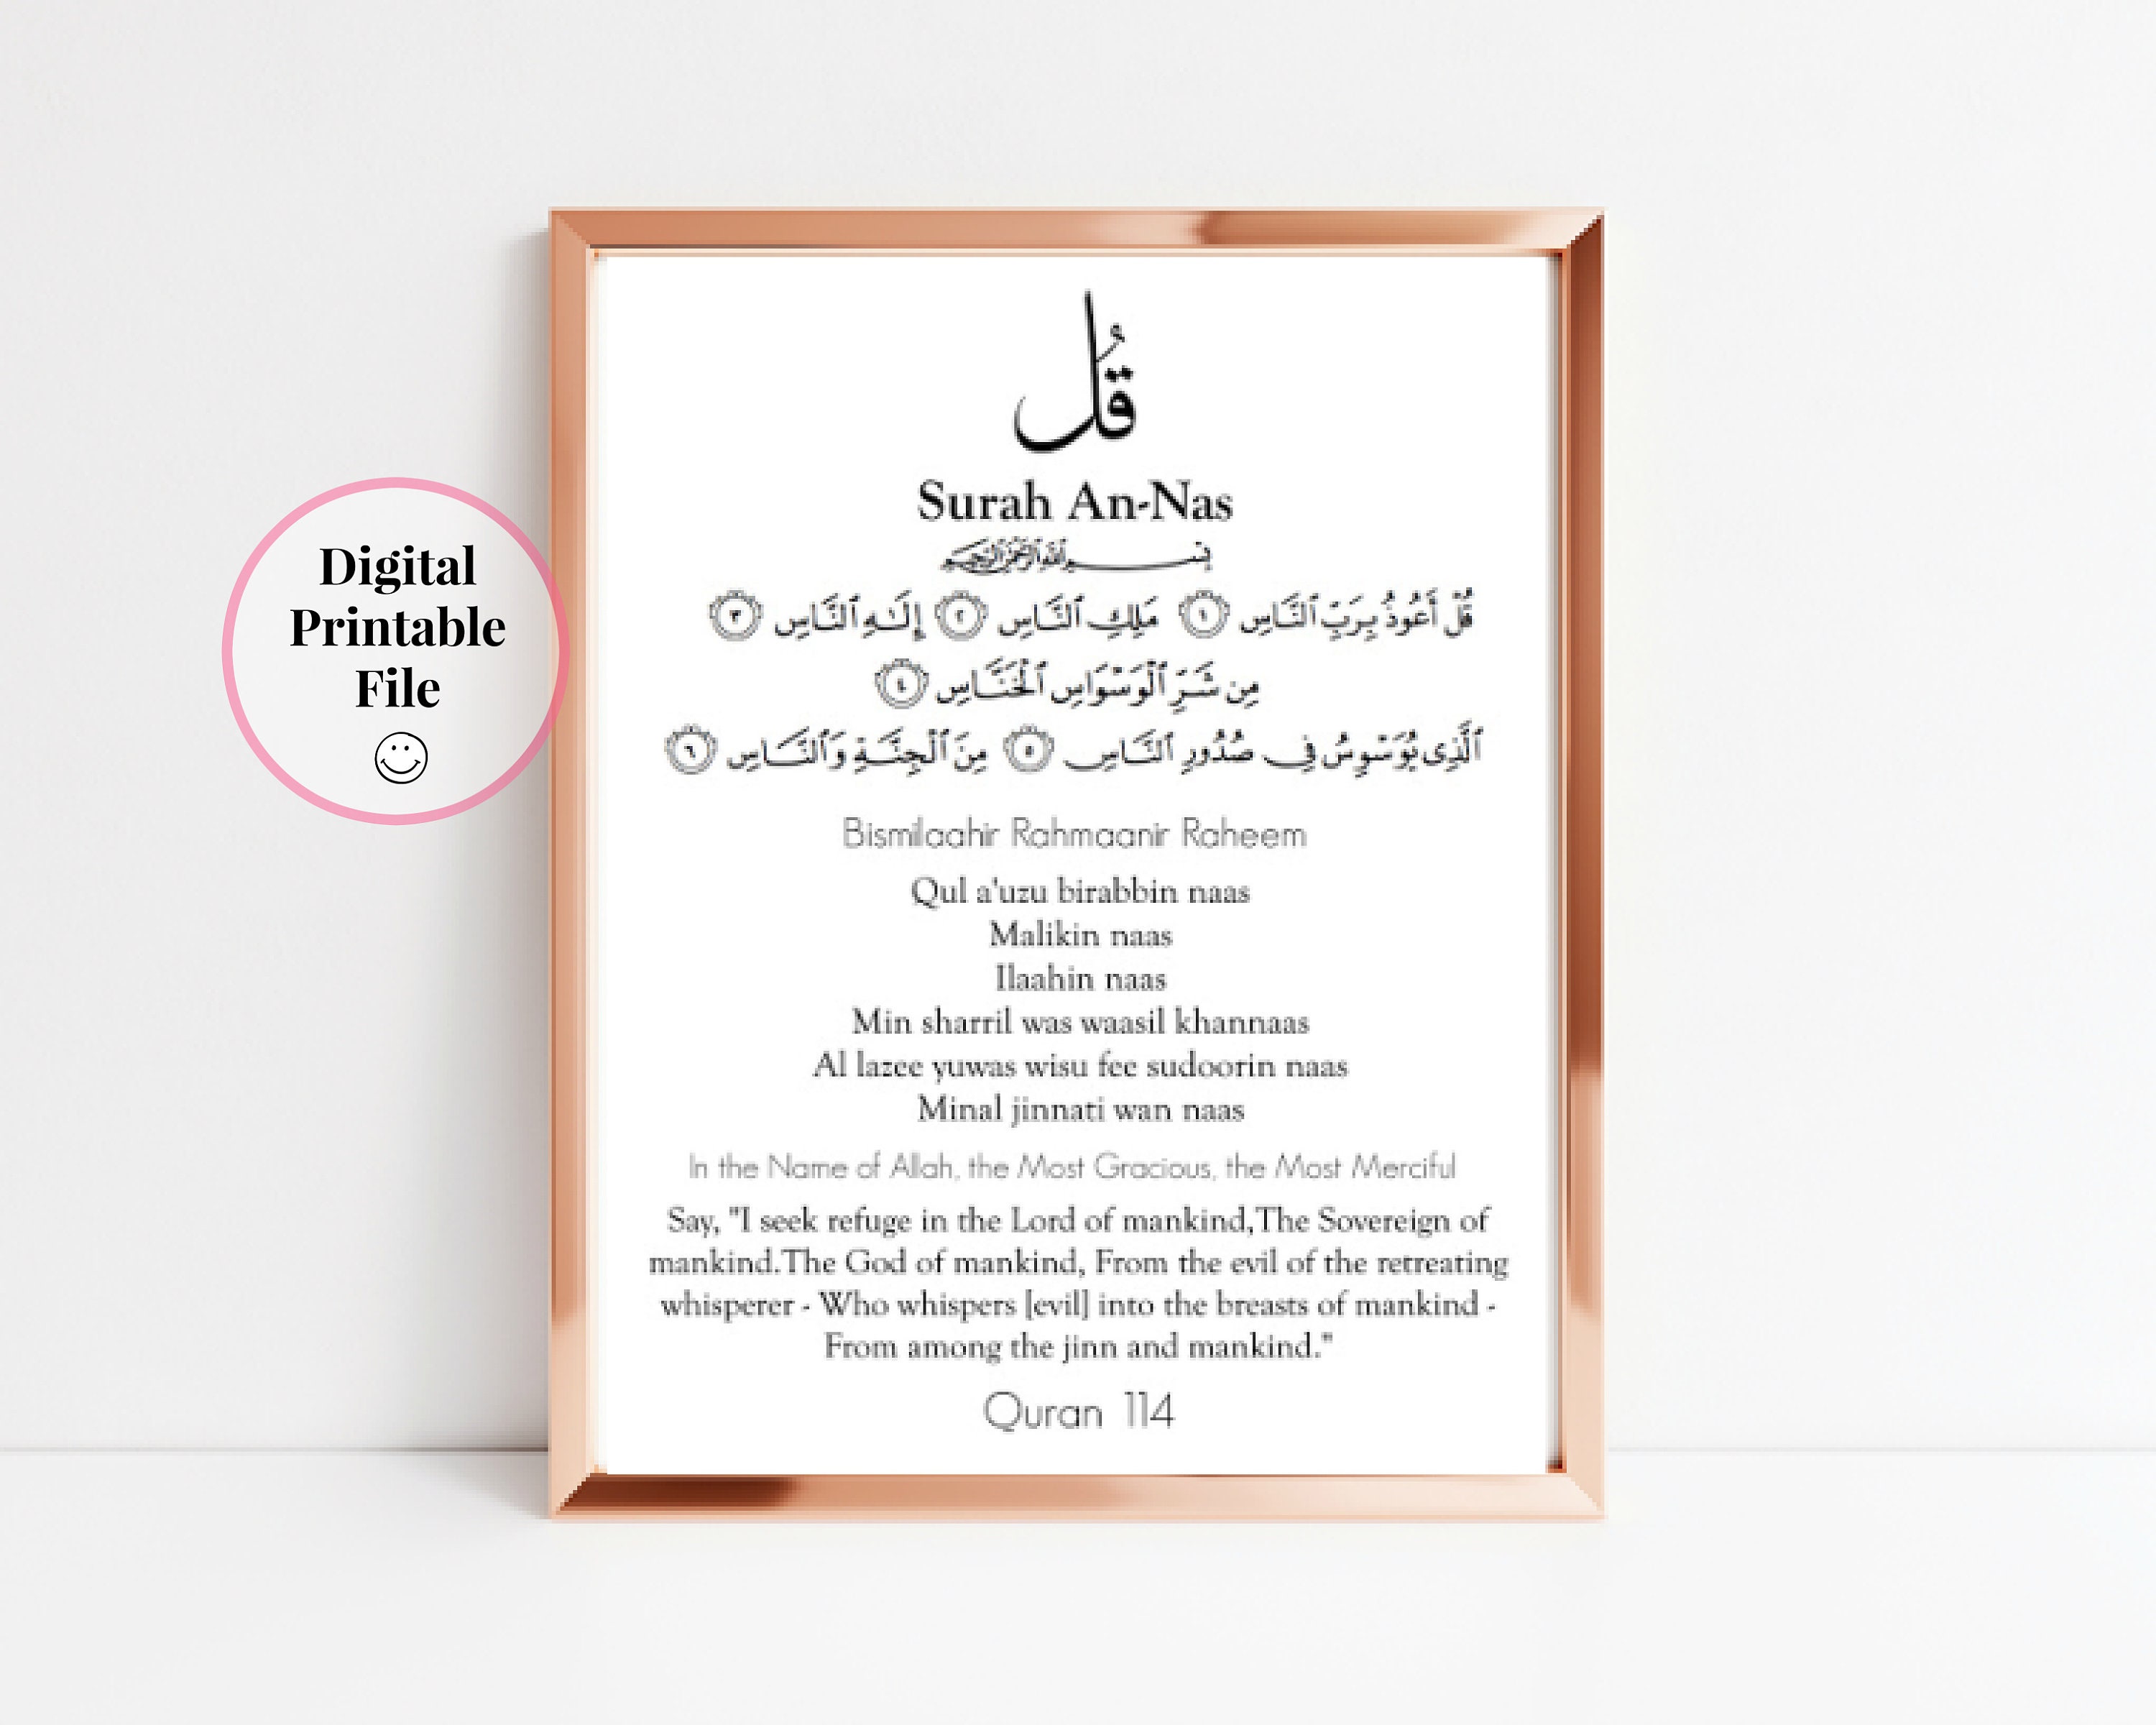 Digital
Printable
File
قُل
Surah An-Nas
بِسْمِ ٱللَّهِ ٱلرَّحْمَٰنِ ٱلرَّحِيمِ
قُلْ أَعُوذُ بِرَبِّ ٱلنَّاسِ ١ مَلِكِ ٱلنَّاسِ ٢ إِلَٰهِ ٱلنَّاسِ ٣
مِن شَرِّ ٱلْوَسْوَاسِ ٱلْخَنَّاسِ ٤
ٱلَّذِى يُوَسْوِسُ فِى صُدُورِ ٱلنَّاسِ ٥ مِنَ ٱلْجِنَّةِ وَٱلنَّاسِ ٦
Bismilaahir Rahmaanir Raheem
Qul a'uzu birabbin naas
Malikin naas
Ilaahin naas
Min sharril was waasil khannaas
Al lazee yuwas wisu fee sudoorin naas
Minal jinnati wan naas
In the Name of Allah, the Most Gracious, the Most Merciful
Say, "I seek refuge in the Lord of mankind,The Sovereign of
mankind.The God of mankind, From the evil of the retreating
whisperer - Who whispers [evil] into the breasts of mankind -
From among the jinn and mankind."
Quran 114